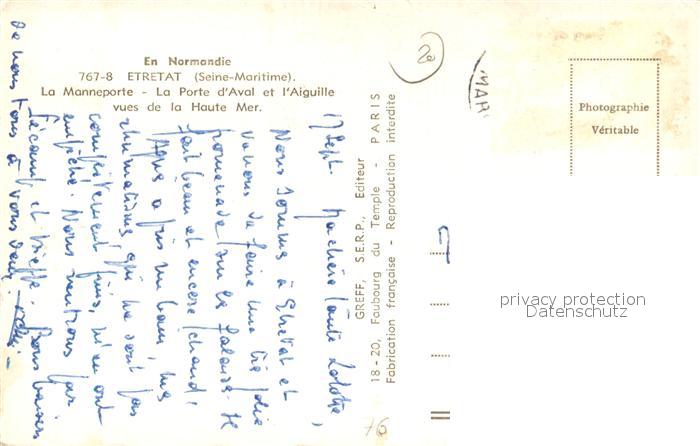 En Normandie
767-8 ETRETAT (Seine-Maritime).
La Manneporte - La Porte d'Aval et l'Aiguille
vues de la Haute Mer.
17 Sept. Ma chère tante Lolotte,
Nous sommes à Etretat et
venons de faire une très jolie
promenade sur la falaise. Il
fait beau et encore chaud,
a pris un bain, mes
rhumatismes qui ne sont pas
complètement finis, m'en ont
empêché. Nous rentrons par
Fécamp et Dieppe. Bons baisers
de nous tous à vous deux.
GREFF, S.E.R.P., Editeur
18-20, Faubourg du Temple - PARIS
Fabrication française - Reproduction interdite
Photographie
Véritable
privacy protection
Datenschutz
76